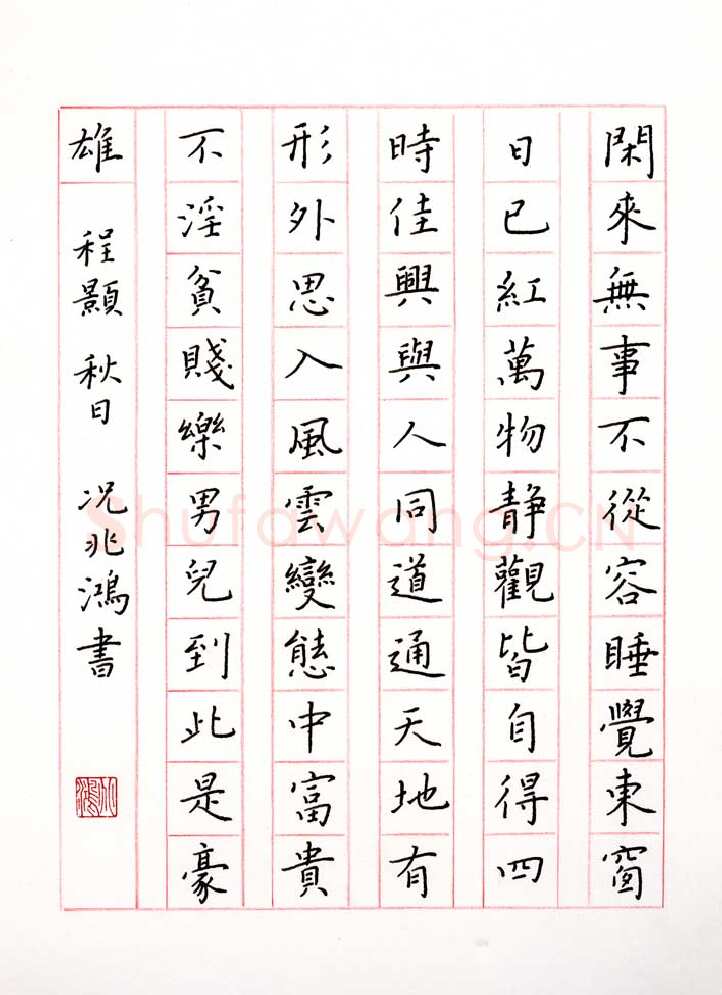 閑來無事不從容睡覺東窗
日已紅萬物靜觀皆自得四
時佳興與人同道通天地有
形外思入風雲變態中富貴
不淫貧賤樂男兒到此是豪
雄
程顥 秋日 况兆鴻書
兆鴻
Shufawang.CN